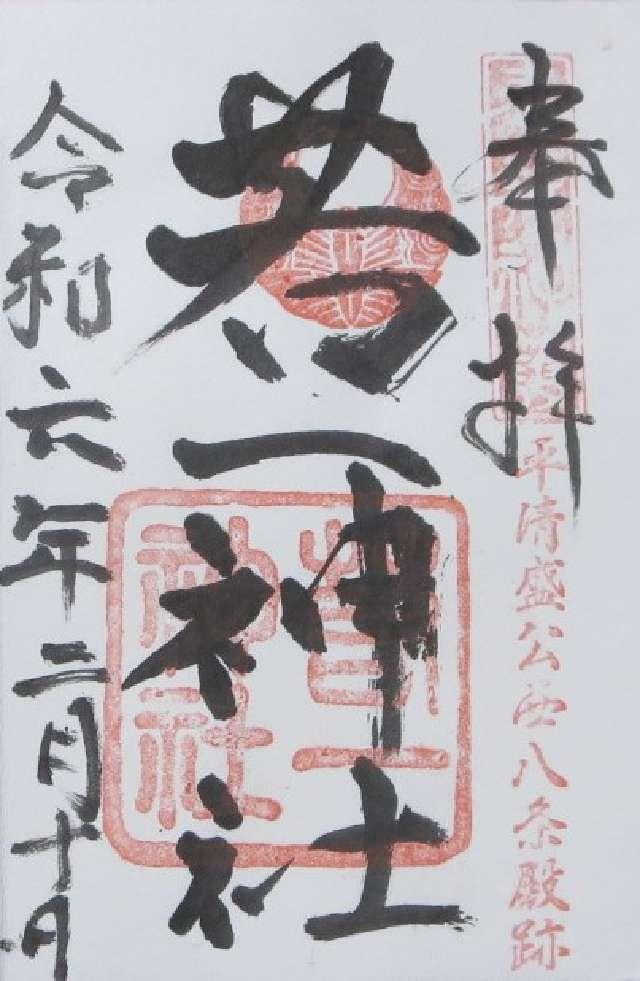 奉拝
平清盛公西八条殿跡
若一神社
若一神社
令和六年二月十日